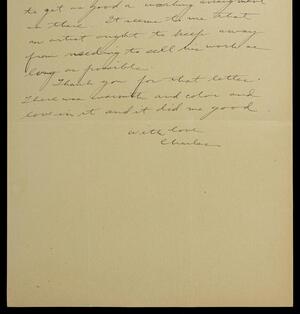 to get as good a working arrangement
as there. It seems to me that
an artist ought to keep away
from needing to sell his work as
long as possible.
Thank you for that letter.
There was warmth and color and
love in it and it did me good.
With love
Charles